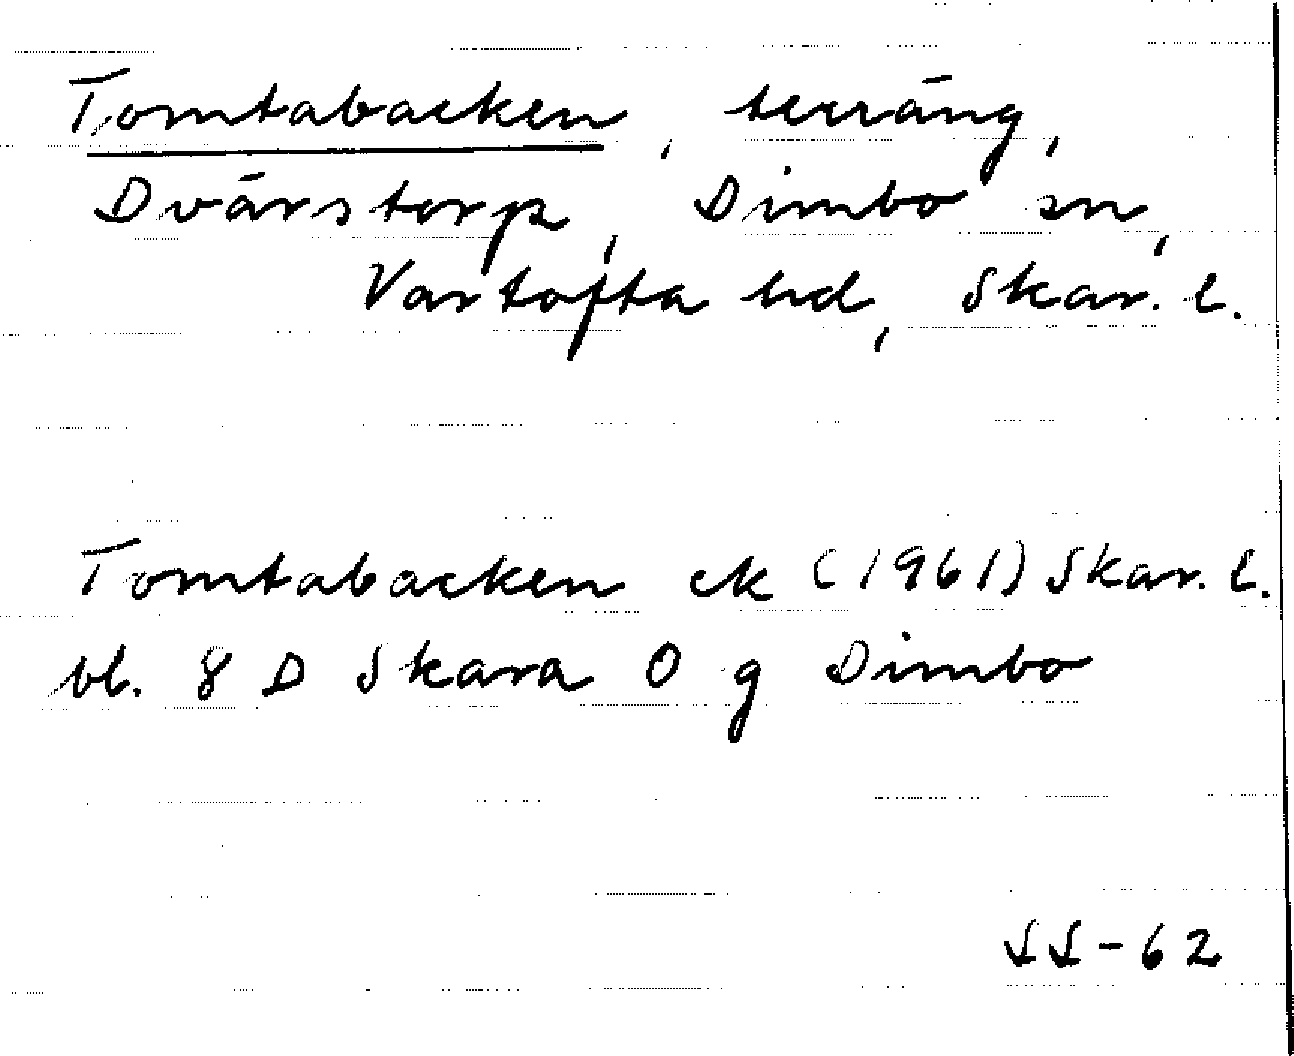 Tomtabacken, terräng,
Dvärstorp, Dimbo sn,
Vartofta hd, Skar. l.
Tomtabacken ek (1961) Skar. l.
bl. 8 D Skara 0 g Dimbo
SS-62